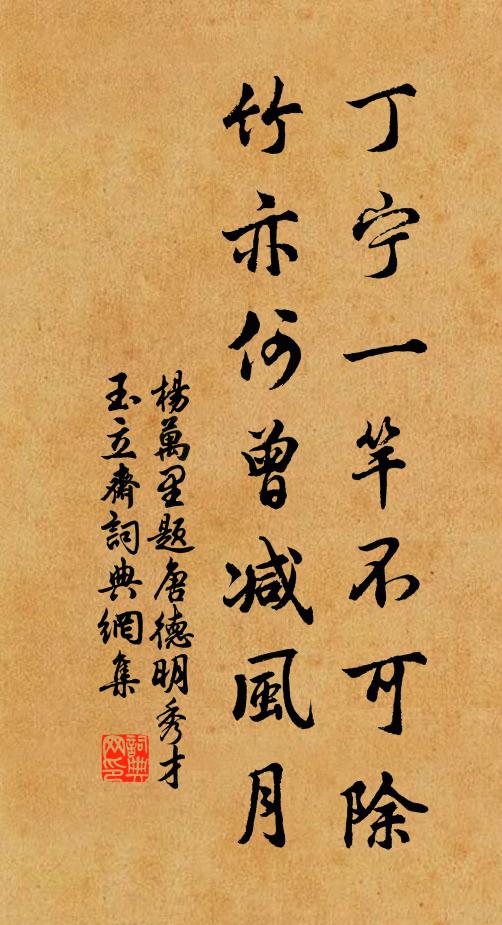 丁宁一竿不可除
竹亦何曾减風月
楊萬里题唐德明秀才
玉立齋詞典網集
詞典
网印